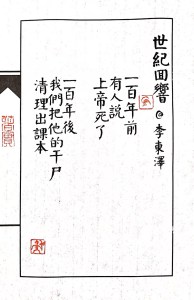 世紀回響 @ 李東澤
一百年前
有人說
上帝死了
一百年後
我們把他的干尸
清理出課本